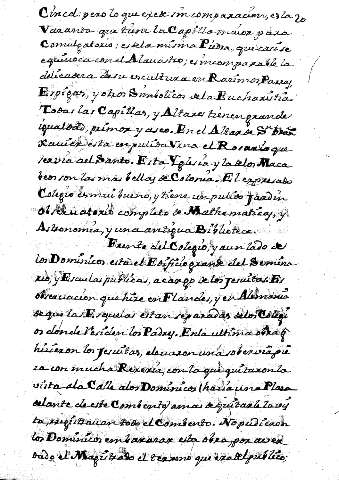 Cincel: pero lo que exede sin comparacion, es la 20
Varanda que tiene la Capilla maior para
Comulgatorio; es de la misma Piedra, que casi se
equivoca con el Alavastro, es incomparable la
delicadeza de su escultura en Razimos, Parras,
Espigas, y otros Simbolicos de la Eucharistia.
Todas las Capillas, y Altares tienen grande
igualdad, primor y aseo. En el Altar de Sn.
Xavier esta en pulida Urna el Rosario que
servia al Santo. Esta Yglesia y la de los Maca
beos son las más bellas de Colonia. El expresado
Colegio es mui bueno, y tiene un pulido Jardin
Observatorio completo de Mathematicas, y
Astronomia, y una antigua Biblioteca.
Frente del Colegio, y a un lado de
los Dominicos está el Edificio grande del Semina-
rio, y Escuelas publicas, a cargo de los Jesuitas. Es
observacion que hize en Flandes, y en Alemania
de que las Escuelas estan separadas de los Colegi
os donde residen los Padres. En la ultima obra q
hizieron los Jesuitas, elevaron una sobervia pie
za con mucha Rexeria, con la que quitaron la
vista a la Calle a los Dominicos (havia una Plaza
delante de este Combento) a mas de quitarle la vis
ta, registravan todo el Combento. No pudieron
los Dominicos embarazar esta obra, por aver
dado el Magistrado el terreno que era del publico,